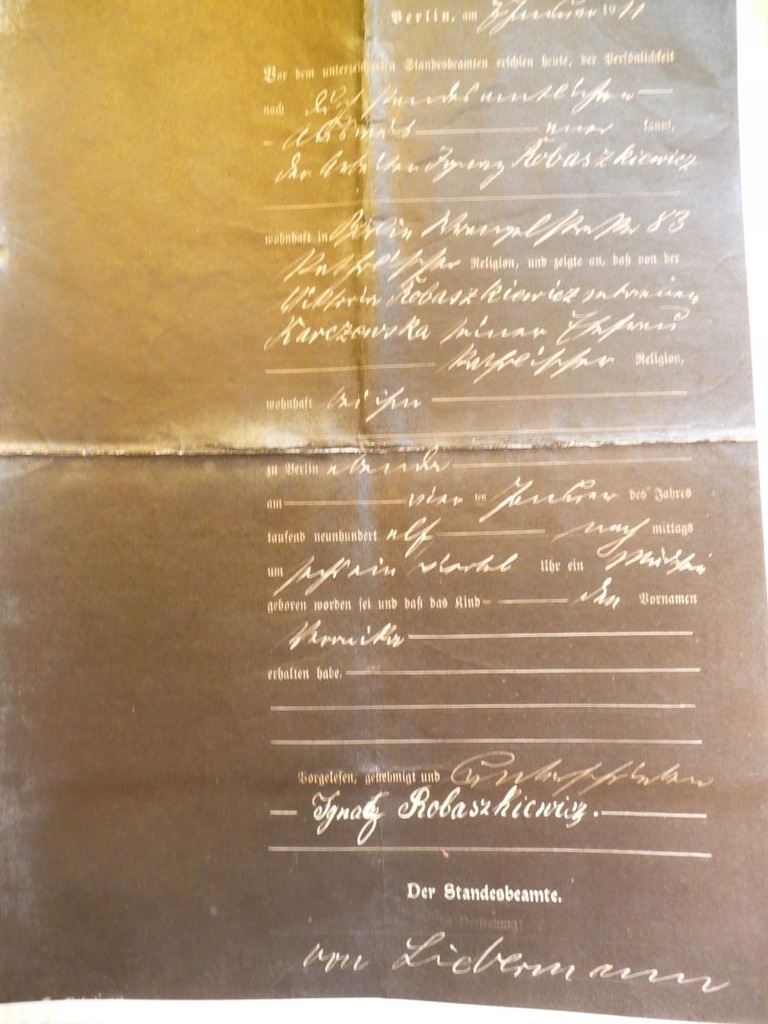 Berlin, am 7 Januar 1911
Vor dem unterzeichneten Standesbeamten erschien heute, der Persönlichkeit
nach durch standesamtlichen
kannt,
der Arbeiter Ignaz Robaszkiewicz
wohnhaft in Berlin Wrangelstraße 83
katholischer Religion, und zeigte an, daß von der
Viktoria Robaszkiewicz geborenen
Karczewska seiner Ehefrau
katholischer Religion,
wohnhaft bei ihm
zu Berlin ebenda
am vier ten Januar des Jahres
tausend neunhundert elf nach mittags
um sechs ein viertel Uhr ein Mädchen
geboren worden sei und daß das Kind den Vornamen
Veronika
erhalten habe.
Vorgelesen, genehmigt und unterschrieben
Ignatz Robaszkiewicz.
Der Standesbeamte.
In Vertretung:
von Liebermann